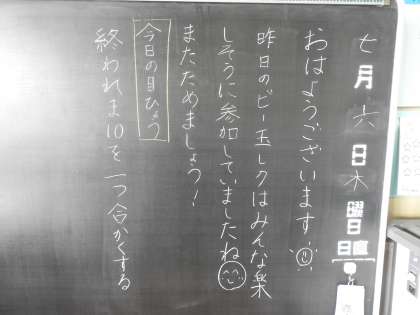 七月六日木曜日
日直
おはようございます
昨日のビー玉レクはみんな楽
しそうに参加していましたね
またためましょう!
今日の目ひょう
終われま10を一つ合かくする